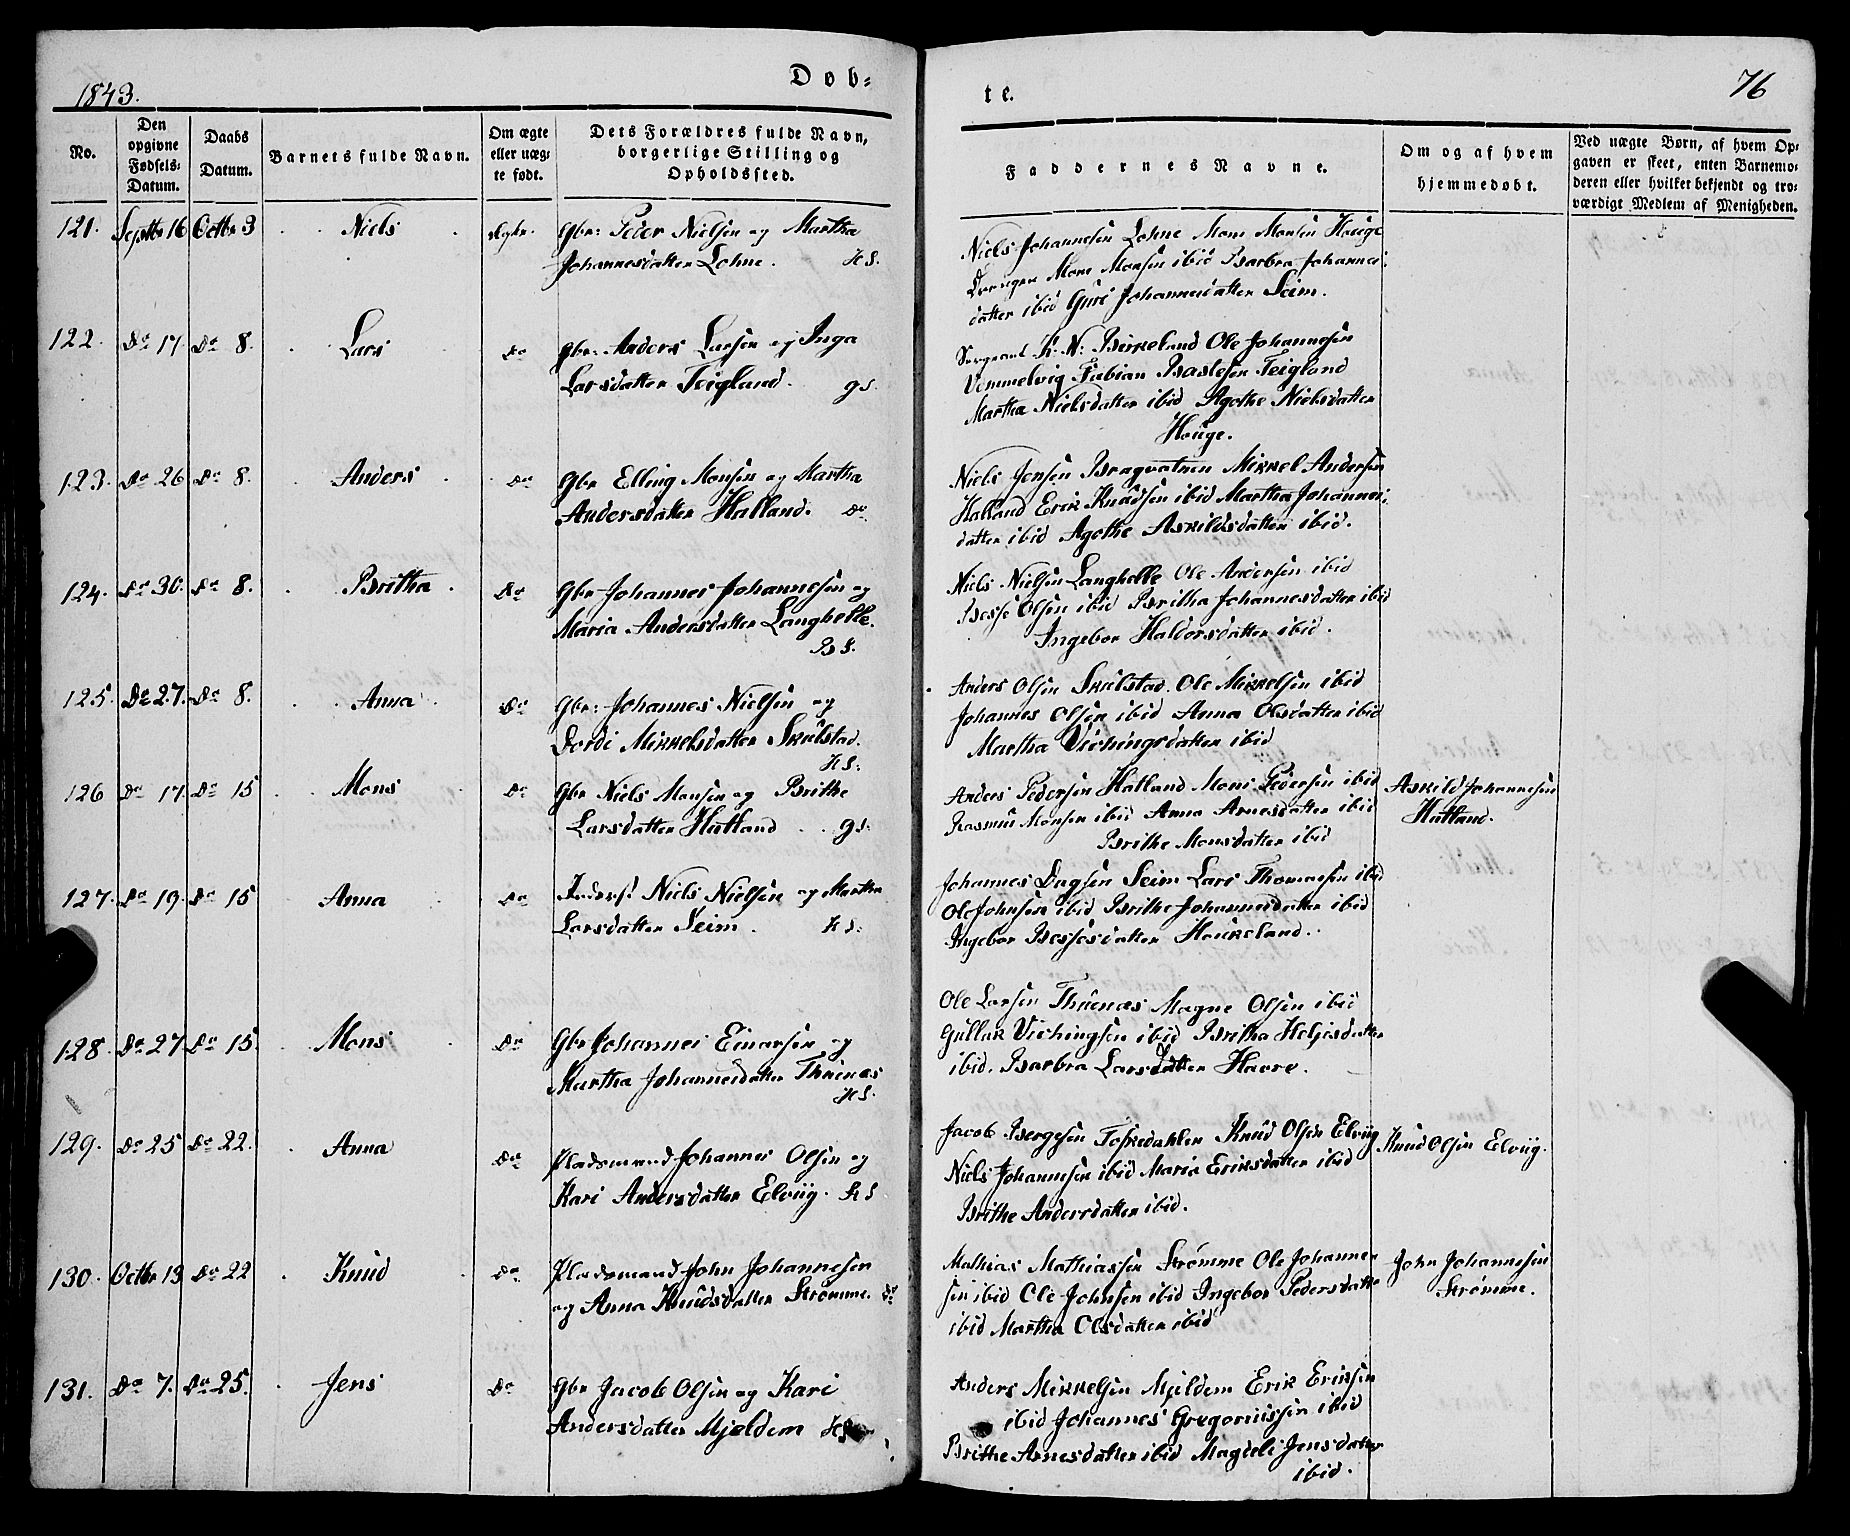 1843.
Døb=
te.
76
No.
Den opgivne Fødsels-Datum.
Daabs Datum.
Barnets fulde Navn.
Om ægte eller uægte født.
Dets Forældres fulde Navn, borgerlige Stilling og Opholdssted.
Faddernes Navne.
Om og af hvem hjemmedøbt.
Ved uægte Børn, af hvem Op-
gaven er skeet, enten Barnemo-
deren eller hvilket bekjendt og tro-
værdigt Medlem af Menigheden.
121. Septbr 16 Octbr 3 Niels Ægte. Gbr: Peder Nielsen og Martha
Johannesdatter Lohne. HS.
Niels Johannesen Lohne Mons Monsen Houge
Drengen Mons Monsen ibid Barbra Johannes-
datter ibid Guri Johannesdatter Seim.
122. Do 17. Do 8. Lars Do Gbr: Anders Larsen og Inga
Larsdatter Teigland. gS.
Sergeant K: N: Birkeland Ole Johannesen
Vommelvig Fabian Baslesen Teigland
Martha Nielsdatter ibid Agothe Nielsdatter
Houge.
123. Do 26 Do 8. Anders Do Gbr Elling Monsen og Martha
Andersdatter Halland. Do
Niels Jensen Bragvatnen Mikkel Andersen
Halland Erik Knudsen ibid Martha Johannes-
datter ibid Agothe Askildsdatter ibid.
124. Do 30. Do 8. Britha Do Gbr Johannes Johannesen og
Maria Andersdatter Langhelle.
BS.
Niels Nielsen Langhelle Ole Andersen ibid
Besse Olsen ibid Britha Johannesdatter ibid
Ingebor Haldorsdatter ibid.
125. Do 27. Do 8. Anna Do Gbr: Johannes Nielsen og
Dordi Mikkelsdatter Skulstad.
HS.
Anders Olsen Skulstad. Ole Mikkelsen ibid
Johannes Olsen ibid Anna Olsdatter ibid
Martha Vichingsdatter ibid
126 Do 17. Do 15 Mons Do Gbr Niels Monsen og Brithe
Larsdatter Hatland gS.
Anders Pedersen Hatland Mons Pedersen ibid
Rasmus Monsen ibid Anna Arnesdatter ibid
Brithe Monsdatter ibid
Askild Johannesen
Hatland.
127. Do 19. Do 15 Anna Do Inders: Niels Nielsen og Martha
Larsdatter Seim. HS.
Johannes Dagsen Seim Lars Thomasen ibid
Ole Johnsen ibid Brithe Johannesdatter ibid
Ingebor Bessesdatter Houkeland.
128. Do 27 Do 15. Mons Do Gbr Johannes Einarsen og
Martha Johannesdatter Thuenæs
HS.
Ole Larsen Thuenæs Magne Olsen ibid
Gullak Vichingsen ibid Britha Helgesdatter
ibid. Barbra Larsdatter Havre.
129. Do 25 Do 22. Anna Do Pladsmand Johannes Olsen og
Kari Andersdatter Elviig. HS
Jacob Bergesen Toskedahlen Knud Olsen Elviig
Niels Johannesen ibid Maria Eriksdatter ibid
Brithe Andersdatter ibid.
Knud Olsen Elviig.
130. Octbr 13 Do 22 Knud Do Pladsmand John Johannesen
og Anna Knudsdatter Strømme. Do
Mathias Mathiassen Strømme Ole Johanne-
sen ibid Ole Johnsen ibid Ingebor Pedersdatter
ibid Martha Olsdatter ibid
John Johannesen
Strømme.
131. Do 7. Do 25. Jens Do Gbr Jacob Olsen og Kari
Andersdatter Mjeldem HS
Anders Mikkelsen Mjeldem Erik Eriksen
ibid Johannes Gregoriussen ibid
Brithe Arnesdatter ibid Magdeli Jensdatter
ibid.